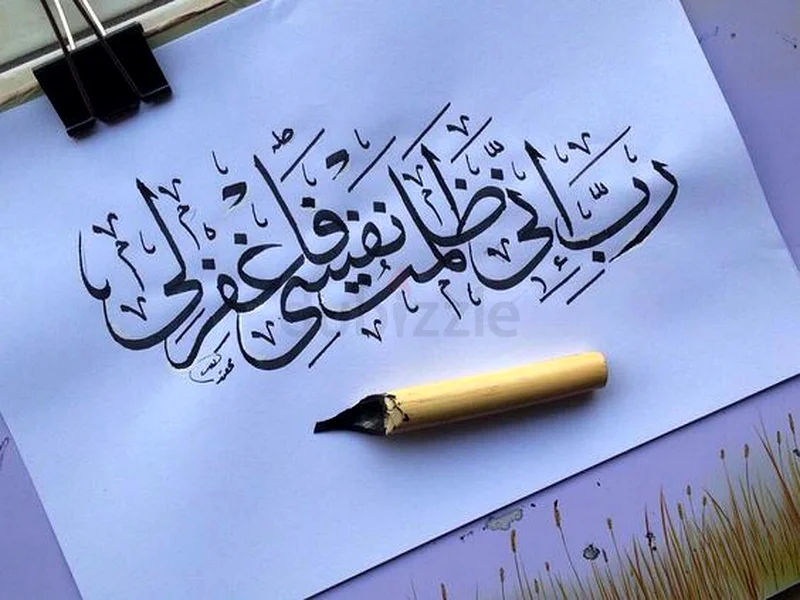 رَبِّ إِنِّي ظَلَمْتُ نَفْسِي فَاغْفِرْ لِي
dubizzle